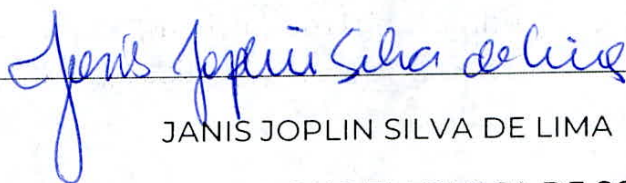 Janis Joplin Silva de Lima
JANIS JOPLIN SILVA DE LIMA